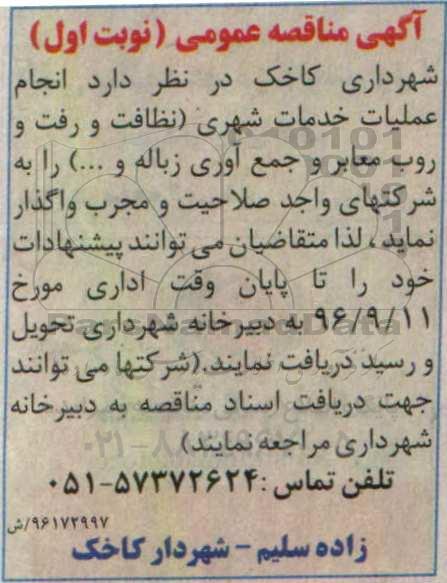 آگهی مناقصه عمومی (نوبت اول)
شهرداری کاخک در نظر دارد انجام
عملیات خدمات شهری (نظافت و رفت و
روب معابر و جمع آوری زباله و ...) را به
شرکتهای واجد صلاحیت و مجرب واگذار
نماید، لذا متقاضیان می توانند پیشنهادات
خود را تا پایان وقت اداری مورخ
۹۶/۹/۱۱ به دبیرخانه شهرداری تحویل
و رسید دریافت نمایند.(شرکتها می توانند
جهت دریافت اسناد مناقصه به دبیرخانه
شهرداری مراجعه نمایند)
تلفن تماس :۵۷۳۷۲۶۲۴-۰۵۱
۹۶۱۷۲۹۹۷/ش
زاده سلیم - شهردار کاخک